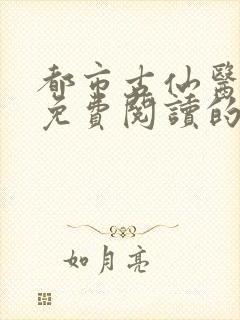 都市古仙醫
免費閱讀的
如月亮